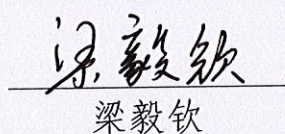 梁毅钦
梁毅钦